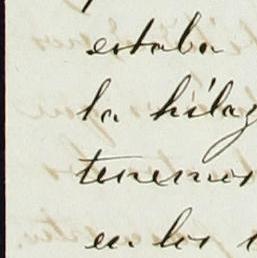 estaba
la hilaz
tenemos
en los